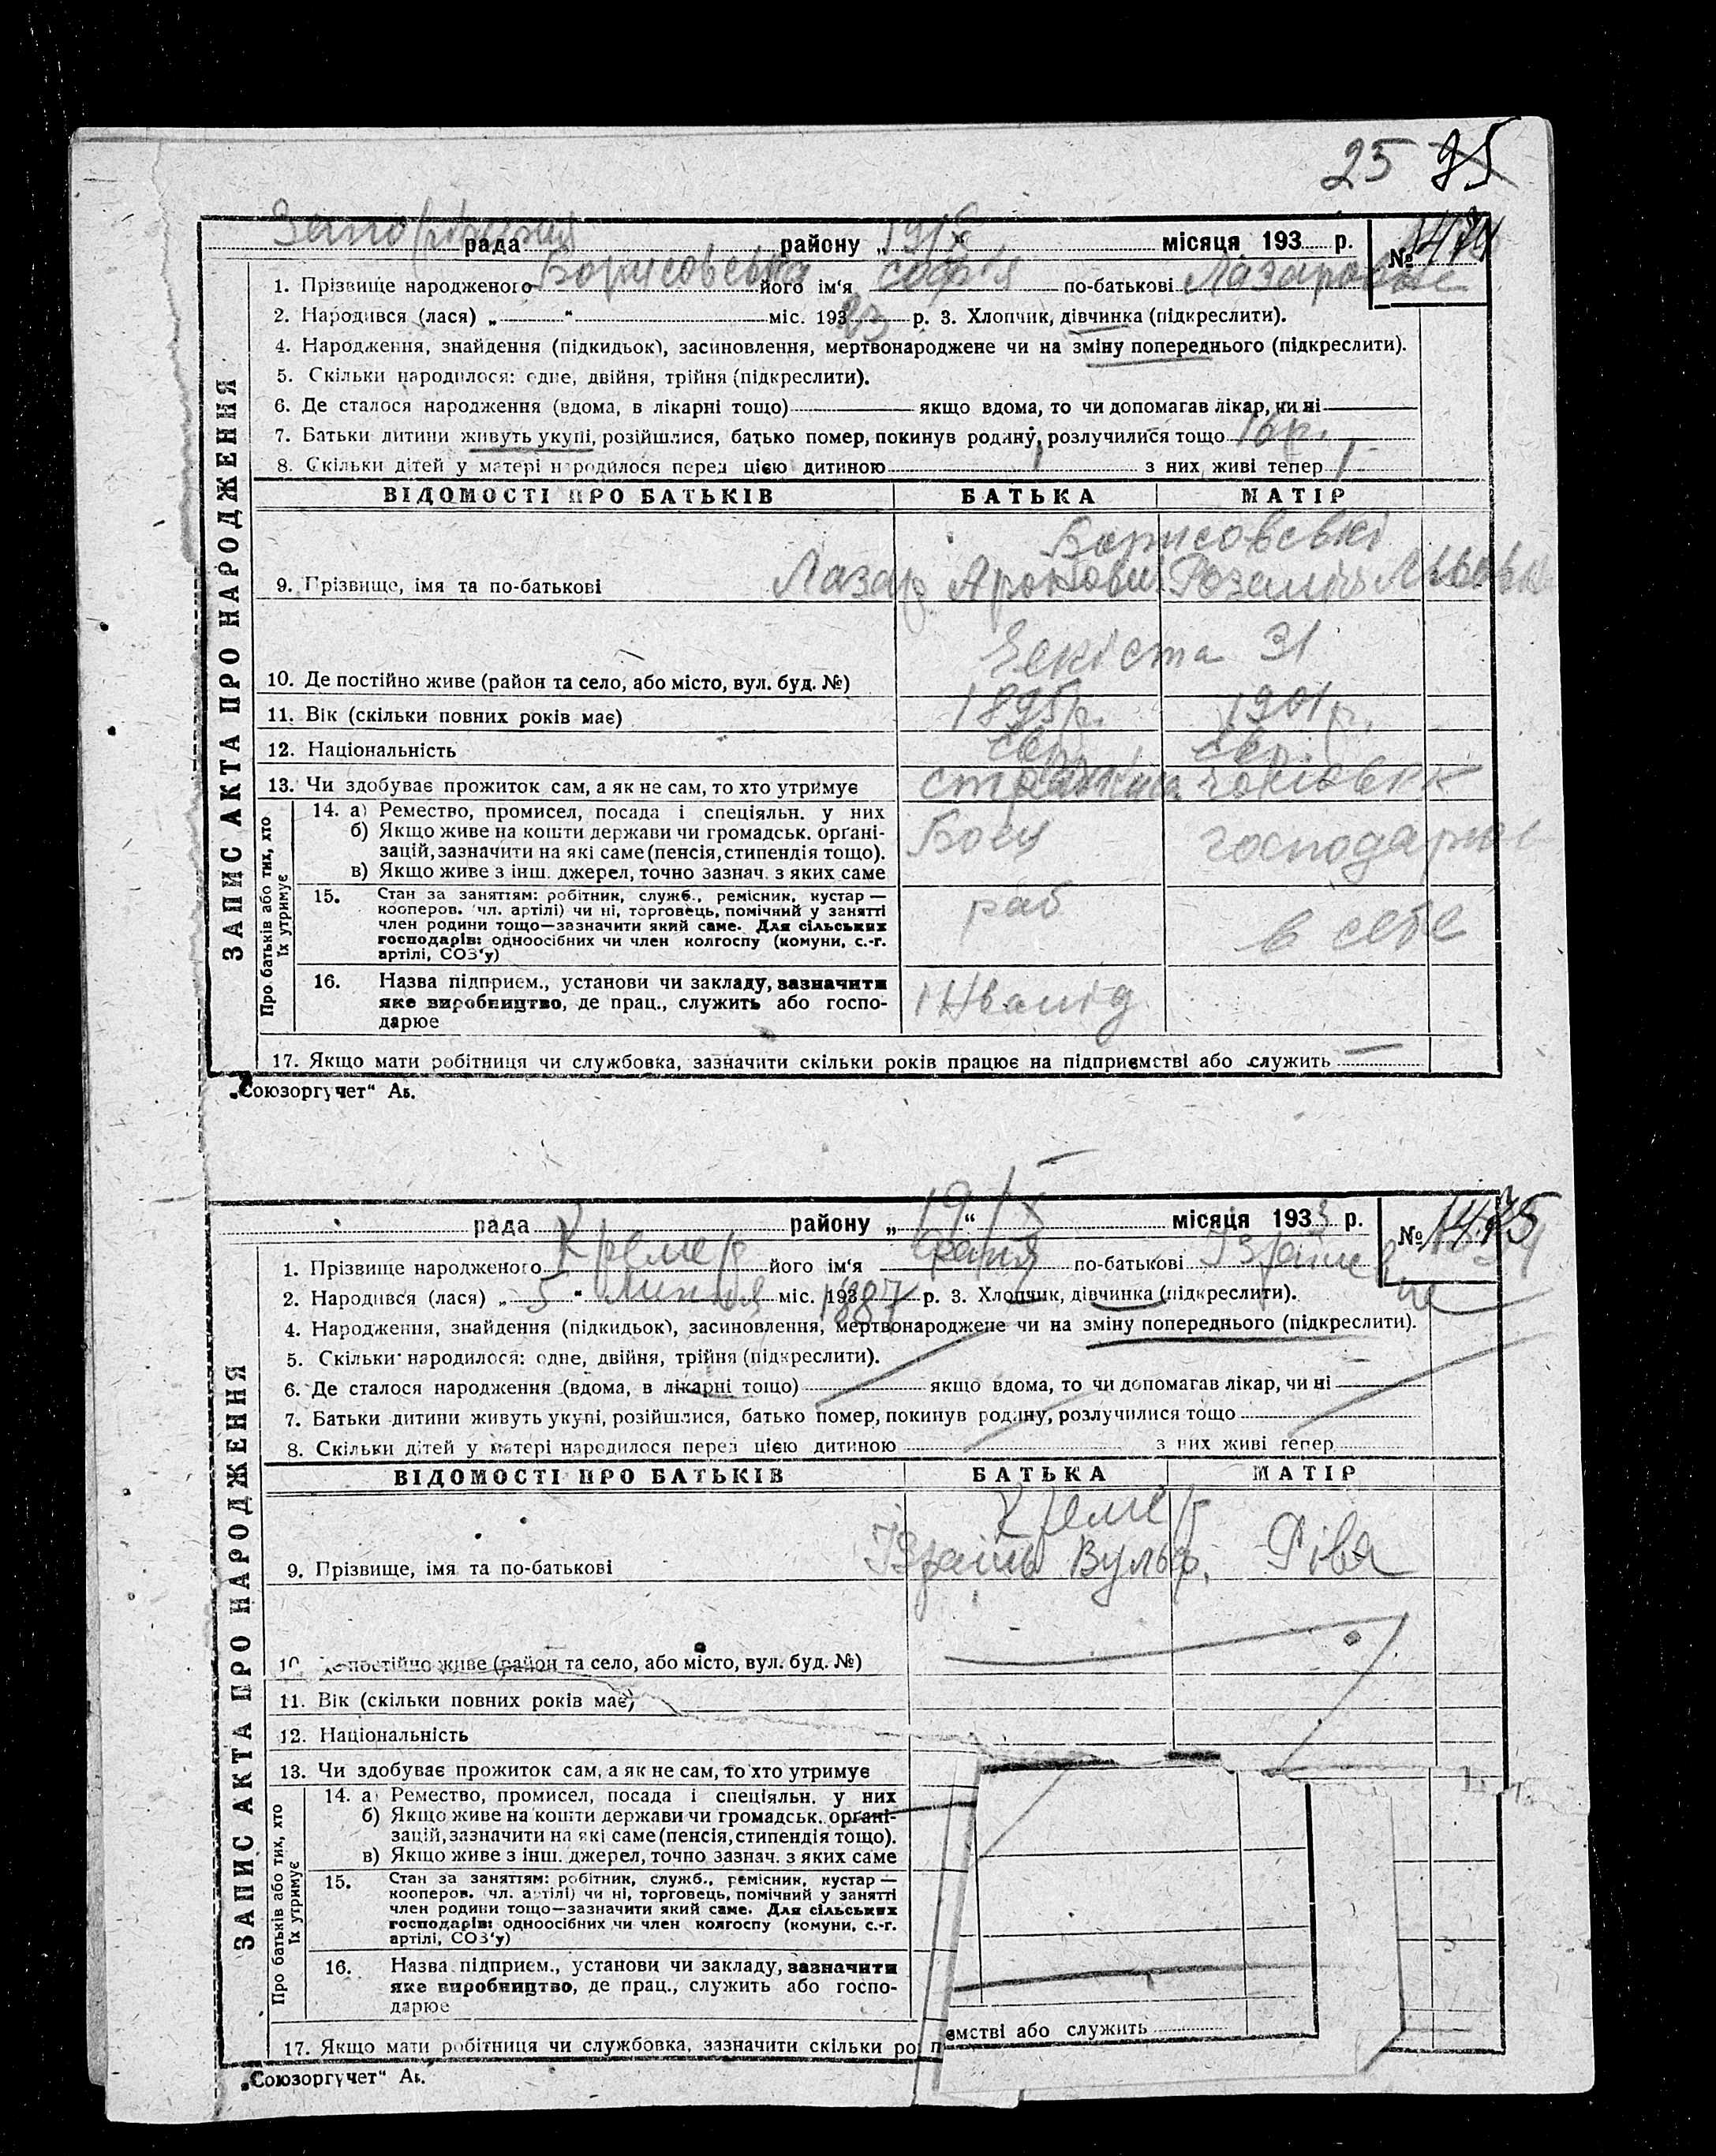 25 95
рада району „19/X“ місяця 193 р. № 1474
1. Прізвище народженого Борисовська його ім'я Софія по-батькові Лазаровне
2. Народився (лася) „ “ міс. 193 23 р. 3. Хлопчик, дівчинка (підкреслити).
4. Народження, знайдення (підкидьок), засиновлення, мертвонароджене чи на зміну попереднього (підкреслити).
5. Скільки народилося: одне, двійня, трійня (підкреслити).
6. Де сталося народження (вдома, в лікарні тощо) якщо вдома, то чи допомагав лікар, чи ні
7. Батьки дитини живуть укупі, розійшлися, батько помер, покинув родину, розлучилися тощо 16р.
8. Скільки дітей у матері народилося перед цією дитиною 1 з них живі тепер 1
ВІДОМОСТІ ПРО БАТЬКІВ БАТЬКА МАТІР
Борисовські
9. Прізвище, імя та по-батькові Лазар Аронови Розалія Львовн
Чекіста 31
10. Де постійно живе (район та село, або місто, вул. буд. №)
11. Вік (скільки повних років має) 1895р. 1901р.
12. Національність євр євр.
13. Чи здобуває прожиток сам, а як не сам, то хто утримує чоловік
14. а) Ремество, промисел, посада і спеціяльн. у них
б) Якщо живе на кошти держави чи громадськ. органі- Боец господарює
зацій, зазначити на які саме (пенсія, стипендія тощо).
в) Якщо живе з інш. джерел, точно зазнач. з яких саме
15. Стан за заняттям: робітник, служб., ремісник, кустар —
кооперов. (чл. артілі) чи ні, торговець, помічний у занятті раб
член родини тощо—зазначити який саме. Для сільських в себе
господарів: одноосібних чи член колгоспу (комуни, с.-г.
артілі, СОЗ'у)
16. Назва підприєм., установи чи закладу, зазначити
яке виробництво, де прац., служить або госпо- інвалід
дарює
17. Якщо мати робітниця чи службовка, зазначити скільки років працює на підприємстві або служить —
ЗАПИС АКТА ПРО НАРОДЖЕННЯ
Про батьків або тих, хто
їх утримує
„Союзоргучет“ Аб.
рада району „19/X“ місяця 1933 р. № 1475
1. Прізвище народженого Кремер його ім'я по-батькові
2. Народився (лася) „5“ липня міс. 1887 р. 3. Хлопчик, дівчинка (підкреслити).
4. Народження, знайдення (підкидьок), засиновлення, мертвонароджене чи на зміну попереднього (підкреслити).
5. Скільки народилося: одне, двійня, трійня (підкреслити).
6. Де сталося народження (вдома, в лікарні тощо) якщо вдома, то чи допомагав лікар, чи ні
7. Батьки дитини живуть укупі, розійшлися, батько помер, покинув родину, розлучилися тощо
8. Скільки дітей у матері народилося перед цією дитиною з них живі тепер
ВІДОМОСТІ ПРО БАТЬКІВ БАТЬКА МАТІР
Кремер
9. Прізвище, імя та по-батькові Ізраїль Вульф. Ріва
10. Де постійно живе (район та село, або місто, вул. буд. №)
11. Вік (скільки повних років має)
12. Національність
13. Чи здобуває прожиток сам, а як не сам, то хто утримує
14. а) Ремество, промисел, посада і спеціяльн. у них
б) Якщо живе на кошти держави чи громадськ. органі-
зацій, зазначити на які саме (пенсія, стипендія тощо).
в) Якщо живе з інш. джерел, точно зазнач. з яких саме
15. Стан за заняттям: робітник, служб., ремісник, кустар —
кооперов. (чл. артілі) чи ні, торговець, помічний у занятті
член родини тощо—зазначити який саме. Для сільських
господарів: одноосібних чи член колгоспу (комуни, с.-г.
артілі, СОЗ'у)
16. Назва підприєм., установи чи закладу, зазначити
яке виробництво, де прац., служить або госпо-
дарює
17. Якщо мати робітниця чи службовка, зазначити скільки ро п ємстві або служить
ЗАПИС АКТА ПРО НАРОДЖЕННЯ
Про батьків або тих, хто
їх утримує
„Союзоргучет“ Аб.